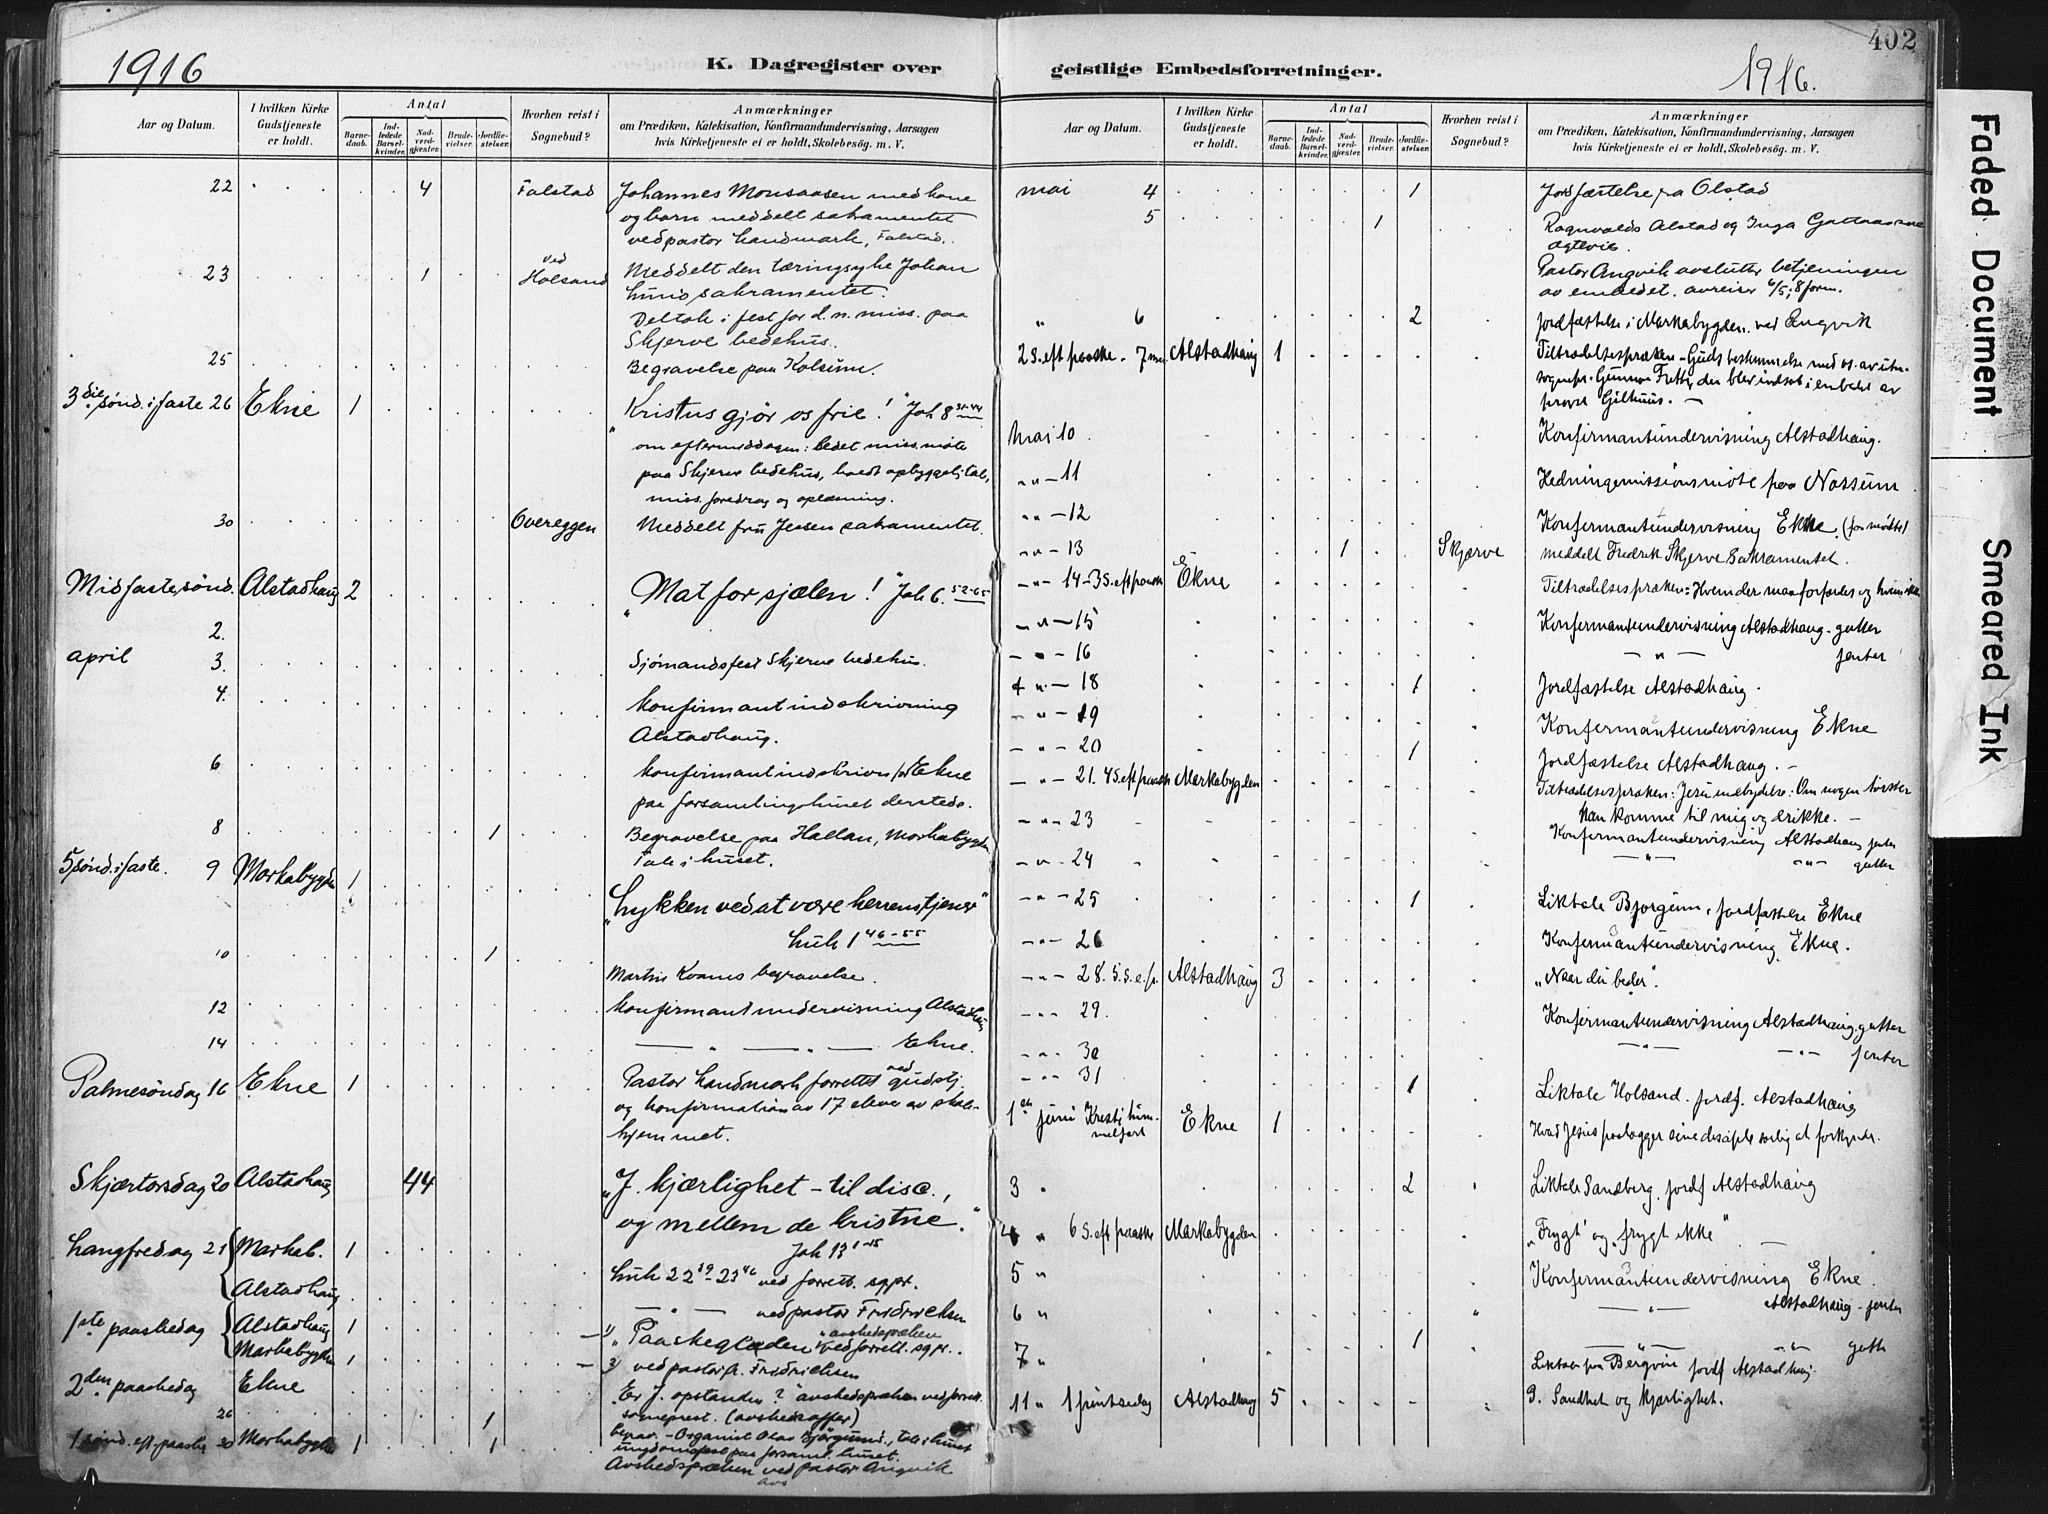 1916
K. Dagregister over
Aar og Datum.
I hvilken Kirke Gudstjeneste er holdt.
Antal
Barnedaab.
Indledede Barselkvinder.
Nadverdgjæster.
Brudevielser.
Jordfæstelser.
Hvorhen reist i Sognebud?
Anmærkninger
om Prædiken, Katekisation, Konfirmandundervisning, Aarsagen
hvis Kirketjeneste ei er holdt, Skolebesøg. m. V.
22 4 Falstad Johannes Monsaasen med kone
og barn meddelt sakramentet
ved pastor Landmark, Falstad.
23 1 ved Holsand Meddelt den tæringsyke Johan
sakramentet.
Deltok i fest for d. n. miss. paa
Skjerve bedehus.
25 Begravelse paa Kolsum.
3die sønd. i faste 26 Ekne 1 "Kristus gjør os frie!" Joh 8 31-44
om eftermiddagen: ledet miss. møte
paa Skjerve bedehus, holdt opbyggelig tale,
miss. foredrag og oplæsning.
30 Overeggen Meddelt fru Jensen sakramentet.
Midfastesønd. 2. Alstadhaug 2 "Mat for sjælen!" Joh 6. 52-65
april 3. Sjømandsfest Skjerve bedehus.
4. Konfirmantindskrivning
Alstadhaug.
6 Konfirmantindskrivn. for Ekne
paa forsamlingshuset dersteds.
8 1 Begravelse paa Hallan, Markabygden
Tale i huset.
5 sønd. i faste. 9 Markabygden 1
"Lykken ved at være herrens tjener"
Luk 1 46-55
10 1 Martin Kvams begravelse.
12 Konfirmantundervisning Alstadhaug
14 — " — " — Ekne.
Palmesøndag 16 Ekne 1 Pastor Landmark forrettet ved gudstj.
og konfirmation av 17 elever av skole-
hjemmet.
Skjærtorsdag 20 Alstadhaug 44 "J. kjærlighet – til disc.,
og mellem de kristne."
Joh 13 1-15
Langfredag 21 Markab. 1 Luk 22 39 - 23 46 ved forrett. sgpr.
Alstadhaug — " — ved pastor Fridrichsen
1ste paaskedag Alstadhaug 1 1) "Paaskeglæden" avskedspræken ved forrett. sgpr.
Markabygden 1 ved pastor A. Fridrichsen
2den paaskedag Ekne "Er J. opstanden?" avskedspræken ved forrett.
26 1 sogneprest. (avskedsoffer)
begrav. – Organist Olav Bjørgum, tale i huset
1 sønd. eft. paaske 30 Markabygden 1 1 ungdomsfest paa forsaml. huset.
Avskedspræken ved pastor Angvik
402
geistlige Embedsforretninger.
1916.
Aar og Datum.
I hvilken Kirke Gudstjeneste er holdt.
Antal
Barnedaab.
Indledede Barselkvinder.
Nadverdgjæster.
Brudevielser.
Jordfæstelser.
Hvorhen reist i Sognebud?
Anmærkninger
om Prædiken, Katekisation, Konfirmandundervisning, Aarsagen
hvis Kirketjeneste ei er holdt, Skolebesøg. m. V.
mai 4 1 Jordfæstelse fra Olstad
5 1 Ragnvalds Alstad og Inga
Pastor Angvik avslutter betjeningen
av embedet. avreiser 6/5, 8 form.
" 6 2 Jordfæstelse i Markabygden ved Angvik
2 S. eft paaske – 7 mai Alstadhaug 1 Tiltrædelsespræken – Guds bestemmelse med os. av utn.
sognepr. Gunnar , der blev indsat i embedet av
provst Gilhuus. –
Mai 10 Konfirmantundervisning Alstadhaug.
–"– 11 Hedningemissionsmøte paa Nossum
–"– 12 Konfermantundervisning Ekne
–"– 13 1 Skjerve meddelt Fredrik Skjerve Sakramentet
–"– 14 – 3 S. eft paaske Ekne Tiltrædelsespræken: Hvem der maa forfærdes og hvem ikke
–"– 15 Konfermantundervisning Alstadhaug. gutter
–"– 16 — " — jenter
–"– 18 1 Jordfæstelse Alstadhaug.
–"– 19 Konfermantundervisning Ekne
–"– 20 1 Jordfæstelse Alstadhaug. –
–"– 21. 4 S. eft paaske Markabygden Tiltrædelsespræken: Jesu indbydelse: Om nogen tørster
han komme til mig og drikke. –
–"– 23 Konfermantundervisning Alstadhaug jenter
–"– 24 –"– –"– gutter
–"– 25 1 Liktale Bjørgum, jordfæstelse Ekne
–"– 26 Konfermantundervisning Ekne.
–"– 28. 5. S. e. p. Alstadhaug 3 "Naar du beder".
–"– 29. Konfermantundervisning Alstadhaug. gutter
–"– 30 –"– –"– jenter
–"– 31 1 Liktale Holsand. jordf. Alstadhaug
1ste juni Kristi himmelfart Ekne 1 Hvad Jesus paalægger sine disciple særlig at forkynde.
3 " 2 Liktale Sandberg. jordf Alstadhaug
4 " 6 S. eft paaske Markabygden "Frygt" og "frygt ikke"
5 " Konfermantundervisning Ekne.
6 " –"– Alstadhaug – jenter
7 " 1 –"– –"– gutt.
Liktale paa Bergvin jordf Alstadhaug.
11 " 1 pintsedag Alstadhaug 5 P. Sandhet og Kjærlighet.
Faded Document
Smeared Ink